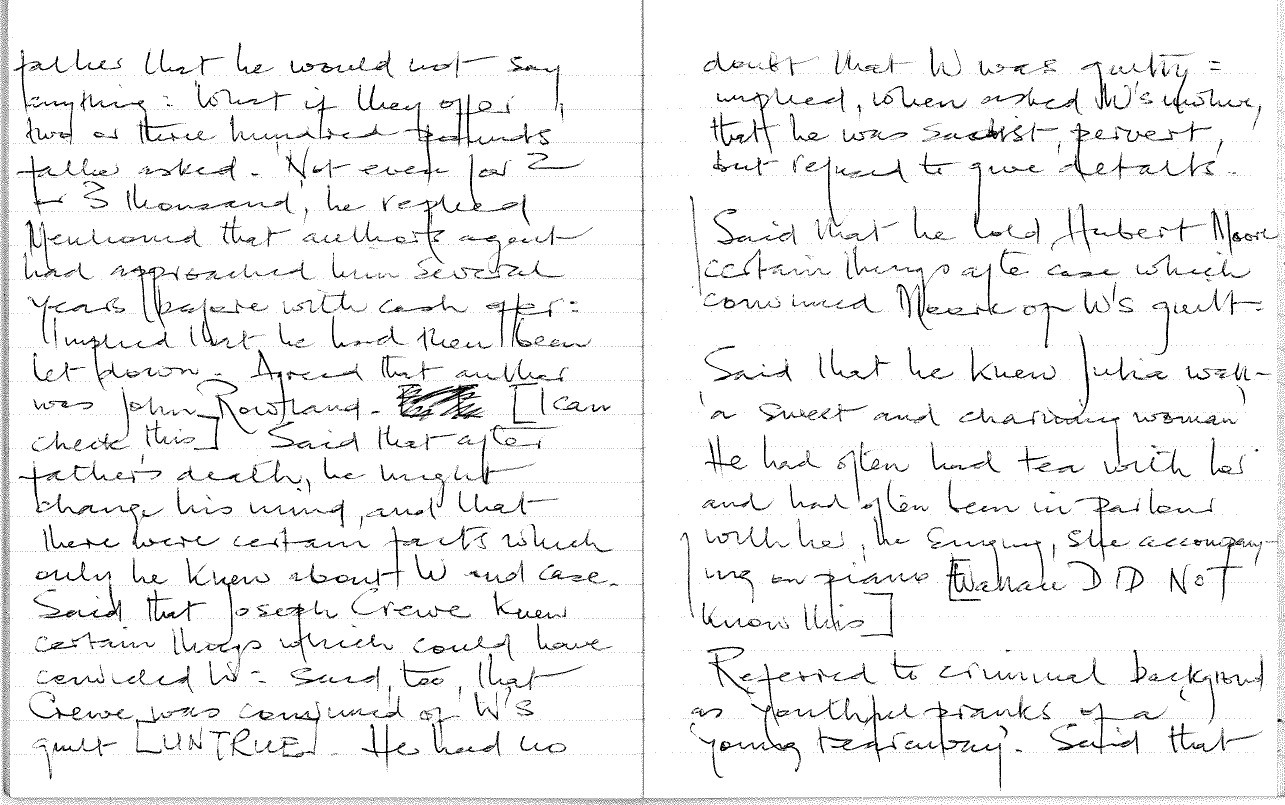 father that he would not say
anything: 'What if they offer
two or three hundred pounds'
father asked. 'Not even for 2
or 3 thousand', he replied
Mentioned that author's agent
had approached him several
years before with cash offer:
Implied that he had then been
let down. Agreed that author
was John Rowland. [I can
check this] Said that after
father's death, he might
change his mind, and that
there were certain facts which
only he knew about W and case.
Said that Joseph Crewe knew
certain things which could have
convicted W = Said, too, that
Crewe was convinced of W's
guilt [UNTRUE]. He had no
doubt that W was guilty =
implied, when asked W's motive,
that he was sadist, pervert,
but refused to give details.
Said that he told Hubert Moore
certain things after case which
convinced Moore of W's guilt.
Said that he knew Julia well -
'a sweet and charming woman'
He had often had tea with her
and had often been in parlour
with her, he singing, she accompany-
ing on piano [Wallace DID NOT
know this]
Referred to criminal background
as 'youthful pranks of a
young tearaway'. Said that